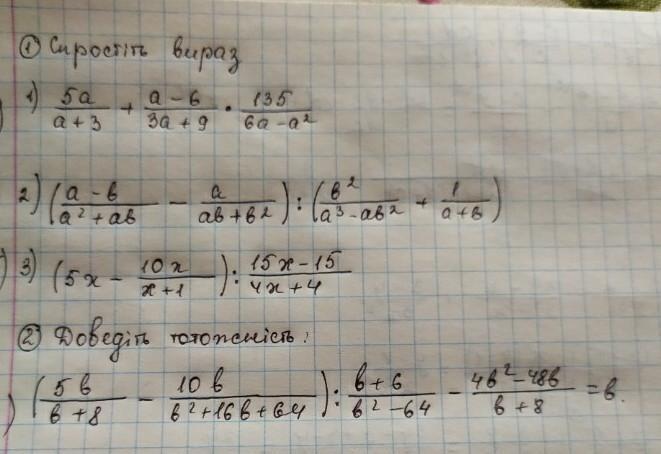 ① Спростіть вираз
1) 5a/(a+3) + (a-6)/(3a+9) · 135/(6a-a²)
2) ((a-b)/(a²+ab) - a/(ab+b²)) : (b²/(a³-ab²) + 1/(a+b))
3) (5x - 10x/(x+1)) : (15x-15)/(4x+4)
② Доведіть тотожність:
) (5b/(b+8) - 10b/(b²+16b+64)) : (b+6)/(b²-64) - (4b²-48b)/(b+8) = b.